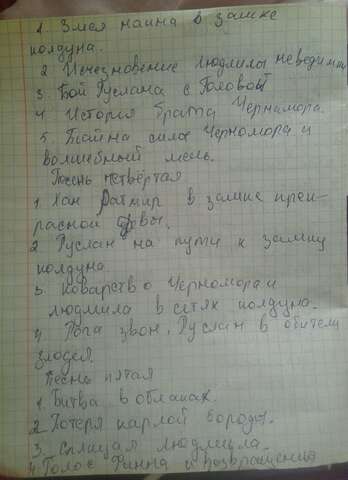 1. Змея наина в замке
колдуна.
2 Исчезновение Людмилы неведимки
3 Бой Руслана с Головой
4 История брата Черномора.
5. Тайна силы Черномора и
волшебный мечь.
Песнь четвёртая
1. Хан Ратмир в замке прек-
расной девы.
2 Руслан на пути к замку
колдуна.
3. коварство Черномора и
людмила в сетях колдуна.
4. Рога звон, Руслан в обители
злодея.
Песнь пятая
1. Битва в облаках.
2 Потеря карлой бороды.
3. спящая людмила.
4. Голос Финна и возвращение